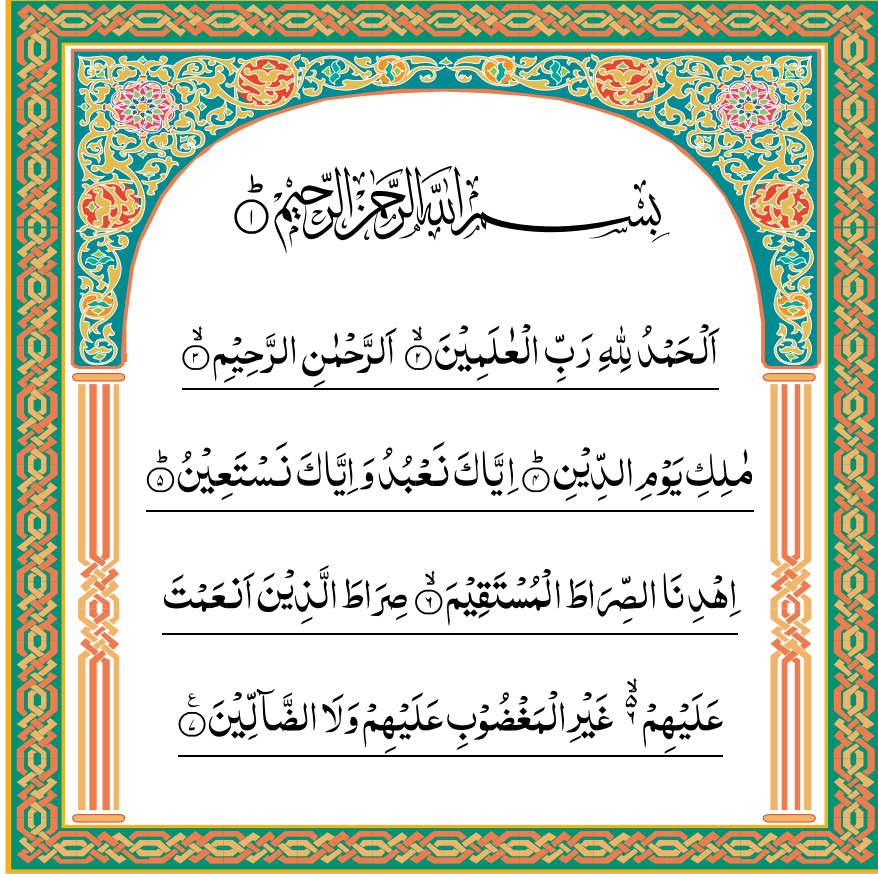 بِسْمِ اللّٰهِ الرَّحْمٰنِ الرَّحِيْمِ ؕ﴿۱﴾
اَلْحَمْدُ لِلّٰهِ رَبِّ الْعٰلَمِيْنَ ۙ﴿۲﴾ اَلرَّحْمٰنِ الرَّحِيْمِ ۙ﴿۳﴾
مٰلِكِ يَوْمِ الدِّيْنِ ؕ﴿۴﴾ اِيَّاكَ نَعْبُدُ وَ اِيَّاكَ نَسْتَعِيْنُ ؕ﴿۵﴾
اِهْدِنَا الصِّرَاطَ الْمُسْتَقِيْمَ ۙ﴿۶﴾ صِرَاطَ الَّذِيْنَ اَنْعَمْتَ
عَلَيْهِمْ ۙ۬ۦ غَيْرِ الْمَغْضُوْبِ عَلَيْهِمْ وَلَا الضَّآلِّيْنَ ﴿۷﴾ع